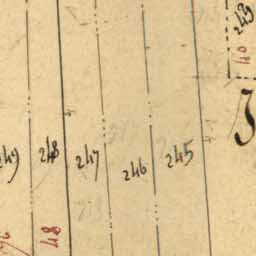 243
40
249 248 247 246 245
48